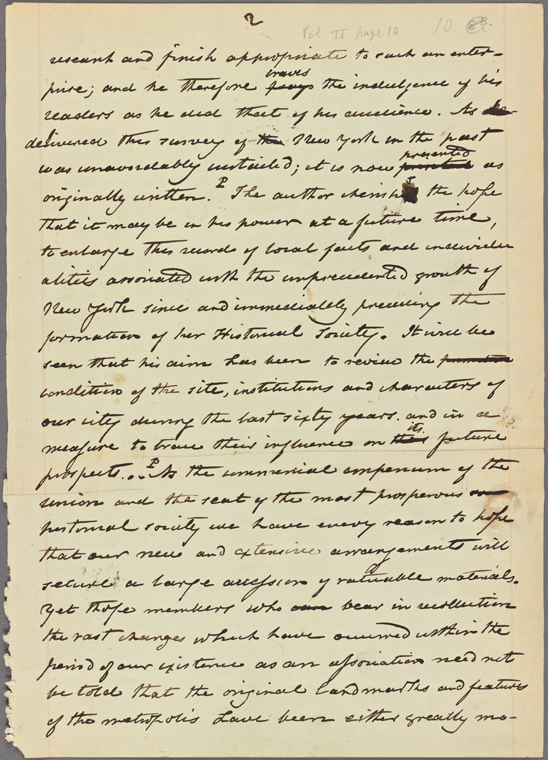 2
Vol. II page 10
10
research and finish appropriate to such an enter-
prise; and he therefore craves the indulgence of his
readers as he did that of his audience. As
delivered this survey of New York in the past
was unavoidably curtailed; it is now presented as
originally written. The author cherishes the hope
that it may be in his power at a future time,
to enlarge this record of local facts and individu
alities associated with the unprecedented growth of
New York since and immediately preceding the
formation of her Historical Society. It will be
seen that his aim has been to review the
condition of the site, institutions and characters of
our city during the last sixty years. and in a
measure to trace their influence on its future
prospects... As the commercial emporium of the
Union and the seat of the most prosperous
historical society we have every reason to hope
that our new and extensive arrangements will
secure a large accession of valuable materials.
Yet those members who bear in recollection
the vast changes which have occurred within the
period of our existence as an association need not
be told that the original landmarks and features
of the metropolis have been either greatly mo-